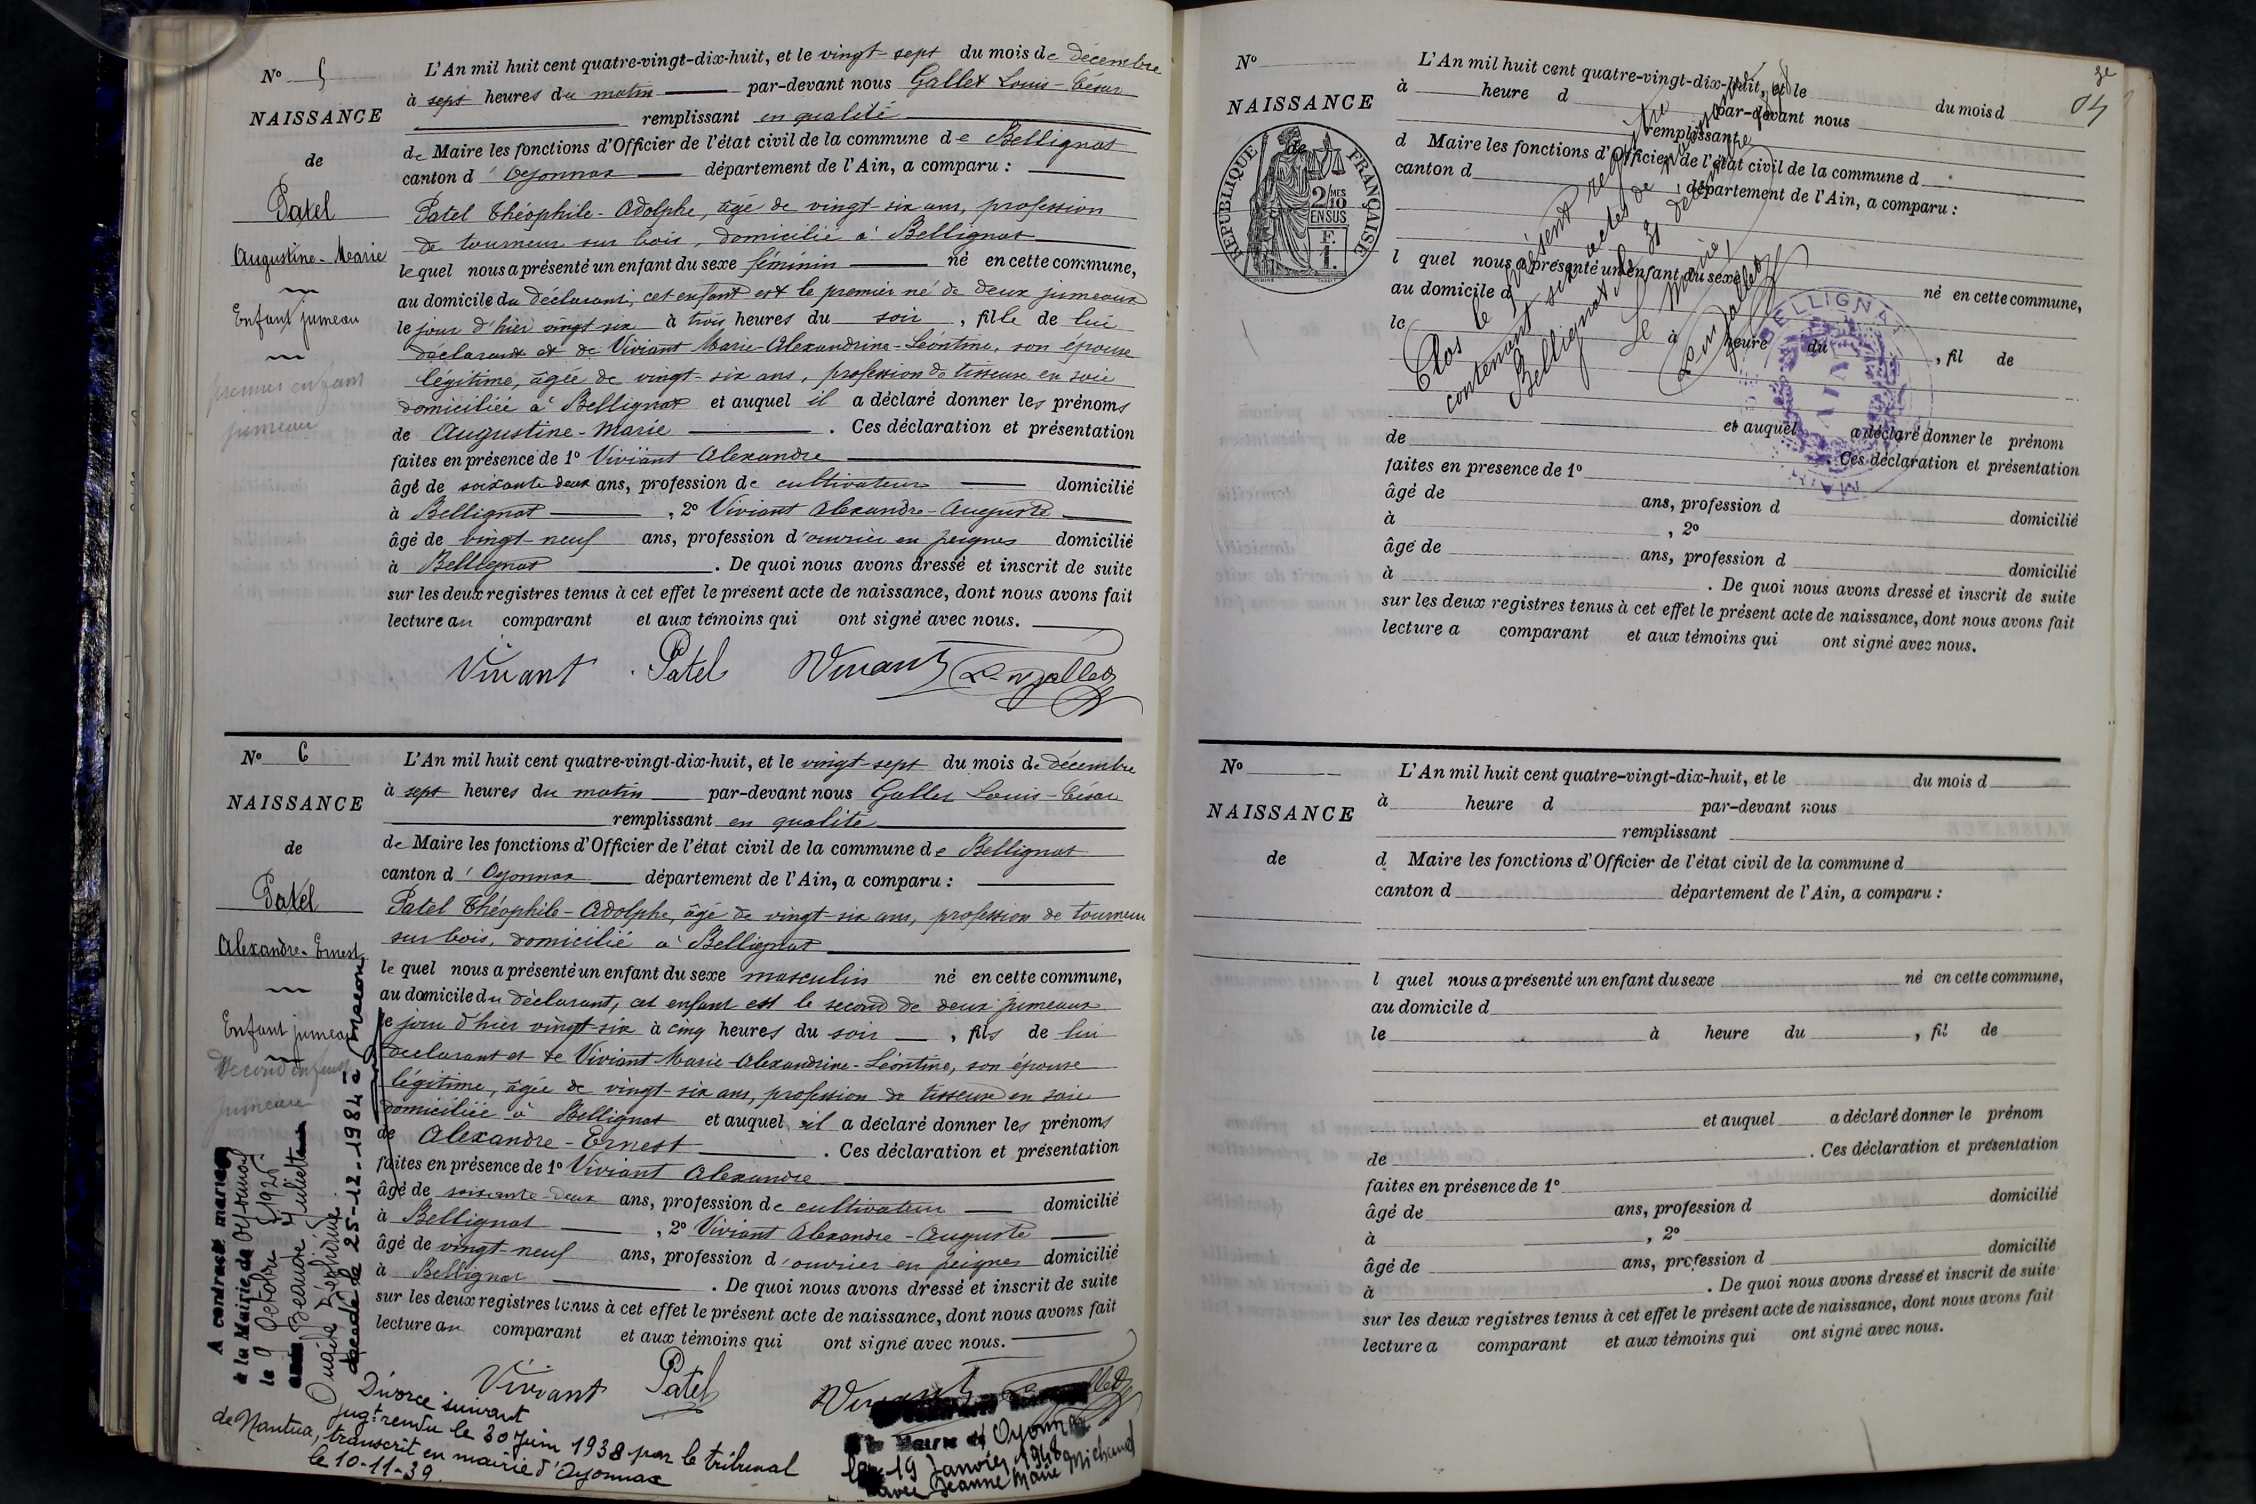 N° 5
NAISSANCE
de
Patel
Augustine-Marie
Enfant jumeau
premier enfant
jumeau
L'An mil huit cent quatre-vingt-dix-huit, et le vingt-sept du mois de décembre
à sept heures du matin par-devant nous Gallet Louis-César
remplissant en qualité
de Maire les fonctions d'Officier de l'état civil de la commune de Bellignat
canton d'Oyonnax département de l'Ain, a comparu :
Patel Théophile-Adolphe, âgé de vingt-six ans, profession
de tourneur sur bois, domicilié à Bellignat
lequel nous a présenté un enfant du sexe féminin né en cette commune,
au domicile du déclarant, cet enfant est le premier né de deux jumeaux
le jour d'hier vingt-six à trois heures du soir, fille de lui
déclarant et de Viviant Marie-Alexandrine-Léontine, son épouse
légitime, âgée de vingt-six ans, profession de tisseuse en soie
domiciliée à Bellignat et auquel il a déclaré donner les prénoms
de Augustine-Marie. Ces déclaration et présentation
faites en présence de 1° Viviant Alexandre
âgé de soixante-deux ans, profession de cultivateur domicilié
à Bellignat, 2° Viviant Alexandre-Auguste
âgé de vingt-neuf ans, profession d'ouvrier en peignes domicilié
à Bellignat. De quoi nous avons dressé et inscrit de suite
sur les deux registres tenus à cet effet le présent acte de naissance, dont nous avons fait
lecture au comparant et aux témoins qui ont signé avec nous.
Viviant Patel Viviant Ls Gallet
N° 6
NAISSANCE
de
Patel
Alexandre-Ernest
Enfant jumeau
Second enfant
jumeau
L'An mil huit cent quatre-vingt-dix-huit, et le vingt-sept du mois de décembre
à sept heures du matin par-devant nous Gallet Louis-César
remplissant en qualité
de Maire les fonctions d'Officier de l'état civil de la commune de Bellignat
canton d'Oyonnax département de l'Ain, a comparu :
Patel Théophile-Adolphe, âgé de vingt-six ans, profession de tourneur
sur bois, domicilié à Bellignat
lequel nous a présenté un enfant du sexe masculin né en cette commune,
au domicile du déclarant, cet enfant est le second de deux jumeaux
le jour d'hier vingt-six à cinq heures du soir, fils de lui
déclarant et de Viviant Marie-Alexandrine-Léontine, son épouse
légitime, âgée de vingt-six ans, profession de tisseuse en soie
domiciliée à Bellignat et auquel il a déclaré donner les prénoms
de Alexandre-Ernest. Ces déclaration et présentation
faites en présence de 1° Viviant Alexandre
âgé de soixante-deux ans, profession de cultivateur domicilié
à Bellignat, 2° Viviant Alexandre-Auguste
âgé de vingt-neuf ans, profession d'ouvrier en peignes domicilié
à Bellignat. De quoi nous avons dressé et inscrit de suite
sur les deux registres tenus à cet effet le présent acte de naissance, dont nous avons fait
lecture au comparant et aux témoins qui ont signé avec nous.
Viviant Patel Viviant
A contracté mariage
à la Mairie de Oyonnax
le 9 Octobre 1925
avec Beaude Juliette
Onaïde Zéphirine
décédé le 25-12-1984 à Macon
Divorce suivant
jugt rendu le 30 Juin 1938 par le tribunal
de Nantua, transcrit en mairie d'Oyonnax
le 10-11-39.
à la Mairie d'Oyonnax
le 19 Janvier 1948
avec Jeanne Marie Michaud
3e
N°
NAISSANCE
de
RÉPUBLIQUE FRANÇAISE
2/10 MES
EN SUS
L'An mil huit cent quatre-vingt-dix-huit, et le du mois d
à heure d par-devant nous
remplissant
d Maire les fonctions d'Officier de l'état civil de la commune d
canton d département de l'Ain, a comparu :
l quel nous a présenté un enfant du sexe né en cette commune,
au domicile d
le à heure du , fil de
et auquel a déclaré donner le prénom
de . Ces déclaration et présentation
faites en présence de 1°
âgé de ans, profession d domicilié
à , 2°
âgé de ans, profession d domicilié
à . De quoi nous avons dressé et inscrit de suite
sur les deux registres tenus à cet effet le présent acte de naissance, dont nous avons fait
lecture a comparant et aux témoins qui ont signé avec nous.
Clos le présent registre
contenant six actes de
Bellignat le 31 décembre
Le Maire,
Ls Gallet
BELLIGNAT
MAIRIE
AIN
N°
NAISSANCE
de
L'An mil huit cent quatre-vingt-dix-huit, et le du mois d
à heure d par-devant nous
remplissant
d Maire les fonctions d'Officier de l'état civil de la commune d
canton d département de l'Ain, a comparu :
l quel nous a présenté un enfant du sexe né en cette commune,
au domicile d
le à heure du , fil de
et auquel a déclaré donner le prénom
de . Ces déclaration et présentation
faites en présence de 1°
âgé de ans, profession d domicilié
à , 2°
âgé de ans, profession d domicilié
à . De quoi nous avons dressé et inscrit de suite
sur les deux registres tenus à cet effet le présent acte de naissance, dont nous avons fait
lecture a comparant et aux témoins qui ont signé avec nous.